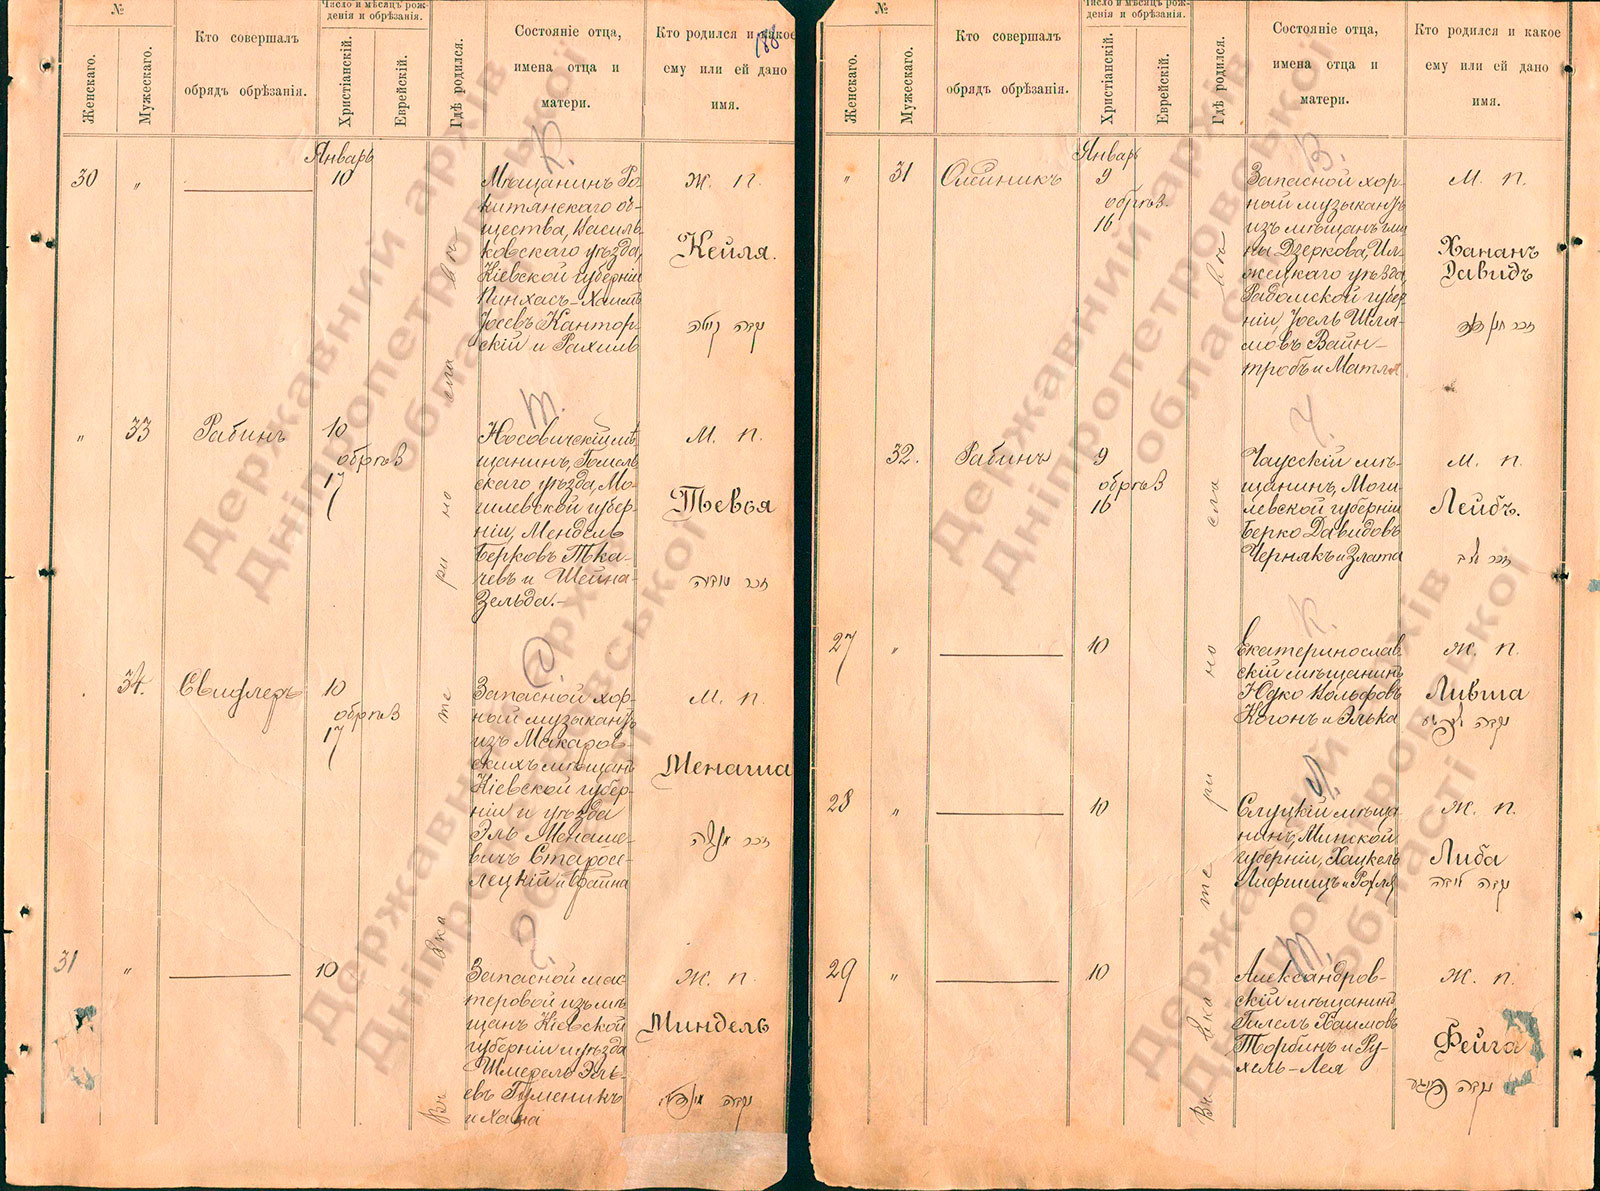 №
Женскаго.
Мужескаго.
Кто совершалъ
обрядъ обрѣзанія.
Число и мѣсяцъ рож-
денія и обрѣзанія.
Христіанскій.
Еврейскій.
Гдѣ родился.
Состояніе отца,
имена отца и
матери.
Кто родился и какое
ему или ей дано
имя.
188
Въ Екатеринославѣ
30
"
Январь
10
К.
Мѣщанинъ Ро-
китянскаго об-
щества, Василь-
ковскаго уѣзда,
Кіевской губерніи
Пинхасъ-Хаимъ
Іосевъ Кантор-
скій и Рахиль
Ж. П.
Кейля.
נקבה קיילה
"
33
Рабинъ
10
обрѣз
17
Т.
Носовичскій мѣ-
щанинъ, Гомель
скаго уѣзда, Мо-
гилевской губер-
ніи, Мендель
Берковъ Тка-
чевъ и Шейна-
Зельда.-
М. П.
Тевья
זכר טוביה
34.
10
обрѣз
17
Запасной хор-
ный музыкантъ
изъ Макаров-
скихъ мѣщанъ
Кіевской губер-
ніи и уѣзда
Эль Менаше-
вичъ Старосе-
лецкій и Файна
М. П.
Менаша
זכר מנשה
31
"
10
Запасной мас-
теровой изъ мѣ
щанъ Кіевской
губерніи и уѣзда
Шмерель Эль-
евъ Гуменикъ
и Хана
Ж. П.
Миндель
נקבה מינדל
№
Женскаго.
Мужескаго.
Кто совершалъ
обрядъ обрѣзанія.
Число и мѣсяцъ рож-
денія и обрѣзанія.
Христіанскій.
Еврейскій.
Гдѣ родился.
Состояніе отца,
имена отца и
матери.
Кто родился и какое
ему или ей дано
имя.
Въ Екатеринославѣ
"
31
Олейникъ
Январь
9
обрѣз.
16
В.
Запасной хор-
ный музыкантъ
изъ мѣщанъ гми-
ны Дзеркова, Ил-
жецкаго уѣзда
Радомской губер
ніи, Іоель Шля-
мовъ Вайн-
тробъ и Матля
М. П.
Хананъ
Давидъ
32.
Рабинъ
9
обрѣз
16
Ч.
Чаусскій мѣ-
щанинъ, Моги-
левской губерніи
Берко Давидовъ
Чернякъ и Злата
М. П.
Лейбъ.
זכר ליב
27
"
10
К.
Екатеринослав-
скій мѣщанинъ
Юдко Вольфовъ
Когонъ и Элька
Ж. П.
Ливша
28
"
10
Л.
Слуцкій мѣща-
нинъ, Минской
губерніи, Хацкель
Лифшицъ и Рохля
Ж. П.
Либа
נקבה ליבה
29
"
10
Т.
Александров-
скій мѣщанинъ
Гилель Хаимовъ
Торбинъ и Ру-
хель-Лея
Ж. П.
Фейга
נקבה פייגא
Державний архів
Дніпропетровської
області